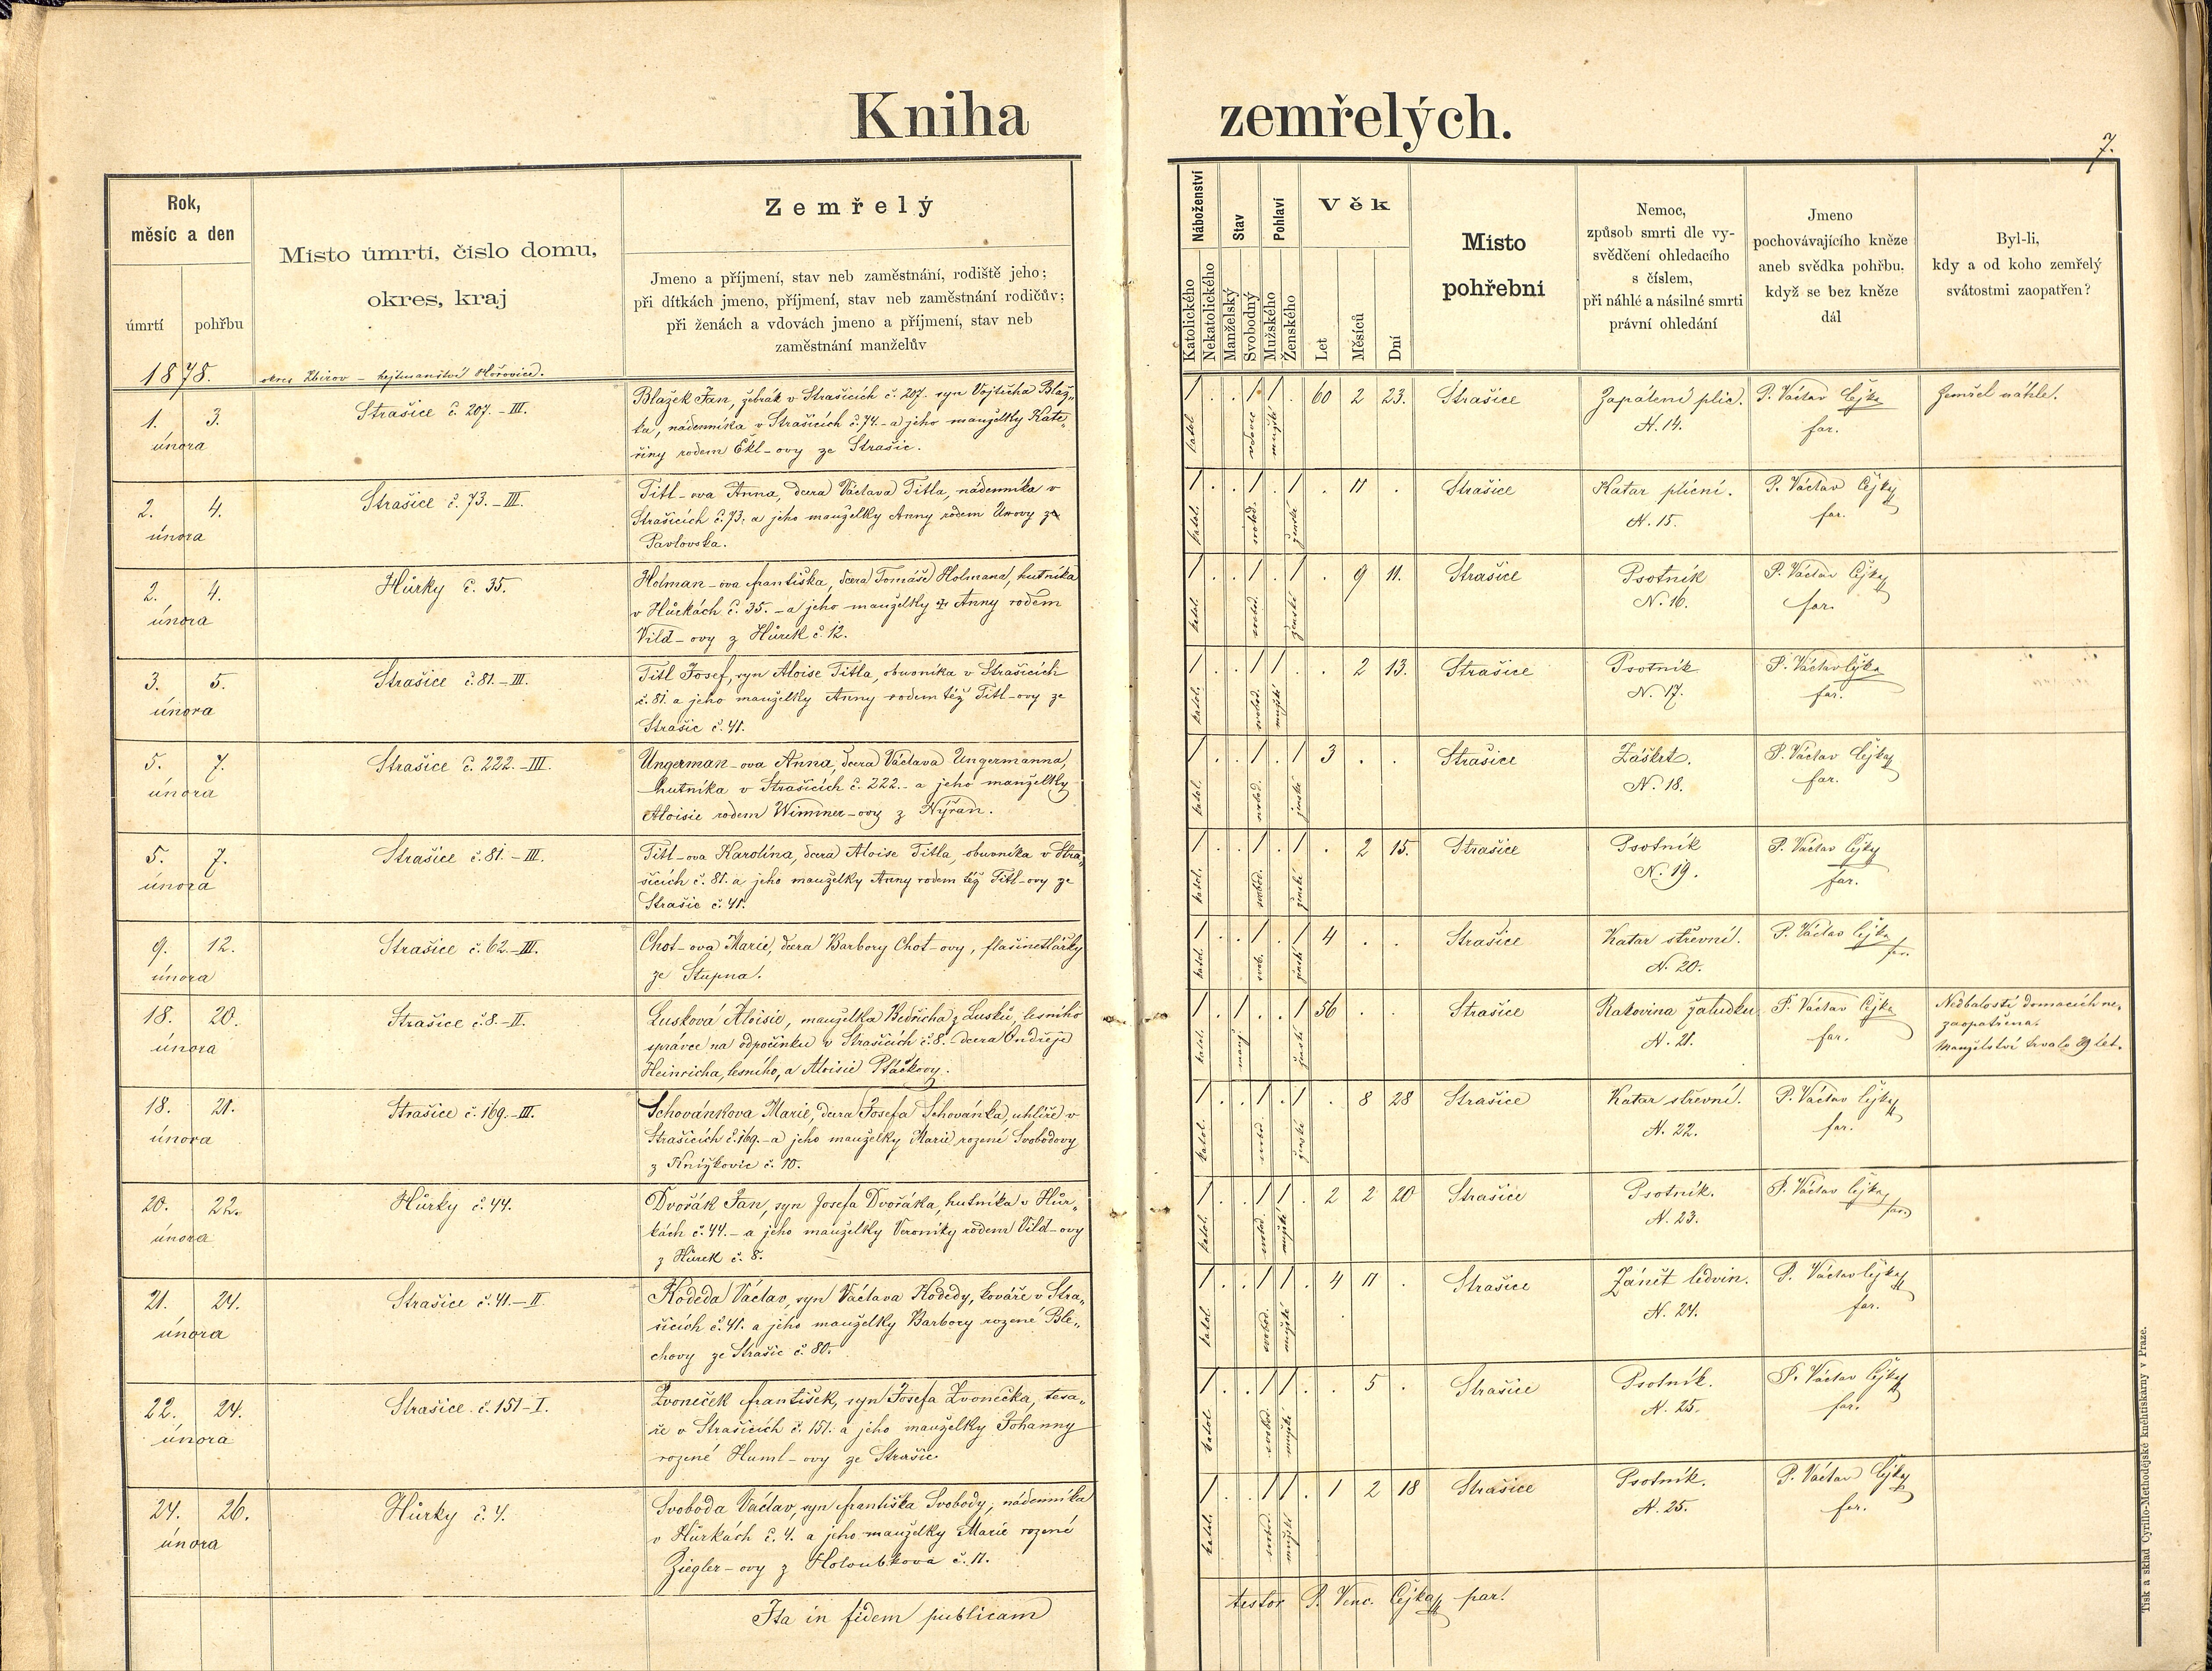 Kniha zemřelých.
7.
Rok,
měsíc a den
úmrtí
pohřbu
Místo úmrtí, číslo domu,
okres, kraj
Zemřelý
Jmeno a příjmení, stav neb zaměstnání, rodiště jeho;
při dítkách jmeno, příjmení, stav neb zaměstnání rodičův;
při ženách a vdovách jmeno a příjmení, stav neb
zaměstnání manželův
Náboženství
Katolického
Nekatolického
Stav
Manželský
Svobodný
Pohlaví
Mužského
Ženského
Věk
Let
Měsíců
Dní
Místo
pohřební
Nemoc,
způsob smrti dle vy-
svědčení ohledacího
s číslem,
při náhlé a násilné smrti
právní ohledání
Jmeno
pochovávajícího kněze
aneb svědka pohřbu,
když se bez kněze
dál
Byl-li,
kdy a od koho zemřelý
svátostmi zaopatřen?
1878.
okres Zbirov – hejtmanství Hořovice.
1. 3.
února
Strašice č. 207.-III.
Blažek Jan, žebrák v Strašicích č. 207. syn Vojtěcha Blaž„
ka, nádenníka v Strašicích č. 74.- a jeho manželky Kate„
řiny rodem Ekl-ovy ze Strašic.
1 . . 1 1 . 60 2 23.
katol. vdovec mužské
Strašice
Zapálení plic.
N. 14.
P. Václav Čejka
far.
Zemřel náhle.
2. 4.
února
Strašice č. 73.-III.
Titl-ova Anna, dcera Václava Titla, nádenníka v
Strašicích č. 73. a jeho manželky Anny rodem Unovy ze
Pavlovska.
1 . . 1 . 1 . 11 .
katol. svobod. ženské
Strašice
Katar plicní.
N. 15.
P. Václav Čejka
far.
2. 4.
února
Hůrky č. 35.
Holman-ova Františka, dcera Tomáše Holmana, hutníka
v Hůrkách č. 35. - a jeho manželky Anny rodem
Vild-ovy z Hůrek č. 12.
1 . . 1 . 1 . 9 11.
katol. svobod. ženské
Strašice
Psotník
N. 16.
P. Václav Čejka
far.
3. 5.
února
Strašice č. 81.-III.
Titl Josef, syn Aloise Titla, obuvníka v Strašicích
č. 81. a jeho manželky Anny rodem též Titl-ovy ze
Strašic č. 41.
1 . . 1 1 . . 2 13.
katol. svobod. mužské
Strašice
Psotník
N. 17.
P. Václav Čejka
far.
5. 7.
února
Strašice č. 222.-III.
Ungerman-ova Anna, dcera Václava Ungermanna,
hutníka v Strašicích č. 222.- a jeho manželky
Aloisie rodem Wimmer-ovy z Nýřan.
1 . . 1 . 1 3 . .
katol. svobod. ženské
Strašice
Záškrt.
N. 18.
P. Václav Čejka
far.
5. 7.
února
Strašice č. 81.-III.
Titl-ova Karolína, dcera Aloise Titla, obuvníka v Stra„
šicích č. 81. a jeho manželky Anny rodem též Titl-ovy ze
Strašic č. 41.
1 . . 1 . 1 . 2 15.
katol. svobod. ženské
Strašice
Psotník
N. 19.
P. Václav Čejka
far.
9. 12.
února
Strašice č. 62.-III.
Chot-ova Marie, dcera Barbory Chot-ovy, flašinetlářky
ze Stupna.
1 . . 1 . 1 4 . .
katol. svob. ženské
Strašice
Katar střevní.
N. 20.
P. Václav Čejka
far.
18. 20.
února
Strašice č. 8.-II.
Lusková Aloisie, manželka Bedřicha z Lusků, lesního
správce na odpočinku v Strašicích č. 8. dcera Ondřeje
Heinricha, lesního, a Aloisie Ptáčkovy.
1 . 1 . . 1 56 . .
katol. manž. ženské
Strašice
Rakovina žaludku
N. 21.
P. Václav Čejka
far.
Nedbalostí domacích ne„
zaopatřena.
Manželství trvalo 29 let.
18. 21.
února
Strašice č. 169.-III.
Schovánkova Marie, dcera Josefa Schovánka, uhlíře v
Strašicích č. 169.- a jeho manželky Marie rozené Svobodovy
z Knížkovic č. 10.
1 . . 1 . 1 . 8 28
katol. svobod. ženské
Strašice
Katar střevní.
N. 22.
P. Václav Čejka
far.
20. 22.
února
Hůrky č. 44.
Dvořák Jan, syn Josefa Dvořáka, hutníka v Hůr„
kách č. 44.- a jeho manželky Veroniky rodem Vild-ovy
z Hůrek č. 8.
1 . . 1 1 . 2 2 20
katol. svobod. mužské
Strašice
Psotník.
N. 23.
P. Václav Čejka
far.
21. 24.
února
Strašice č. 41.-II.
Kodeda Václav, syn Václava Kodedy, kováře v Stra„
šicích č. 41. a jeho manželky Barbory rozené Ble„
chovy ze Strašic č. 80.
1 . . 1 1 . 4 11 .
katol. svobod. mužské
Strašice
Zánět ledvin.
N. 24.
P. Václav Čejka
far.
22. 24.
února
Strašice č. 151-I.
Zvoneček František, syn Josefa Zvonečka, tesa„
ře v Strašicích č. 151. a jeho manželky Johanny
rozené Huml-ovy ze Strašic.
1 . . 1 1 . . 5 .
katol. svobod. mužské
Strašice
Psotník.
N. 25.
P. Václav Čejka
far.
24. 26.
února
Hůrky č. 4.
Svoboda Václav, syn Františka Svobody, nádenníka
v Hůrkách č. 4. a jeho manželky Marie rozené
Ziegler-ovy z Holoubkova č. 11.
1 . . 1 1 . 1 2 18
katol. svobod. mužské
Strašice
Psotník.
N. 25.
P. Václav Čejka
far.
Ita in fidem publicam
testor P. Venc. Čejka par.
Tisk a sklad Cyrillo-Methodějské knihtiskárny v Praze.